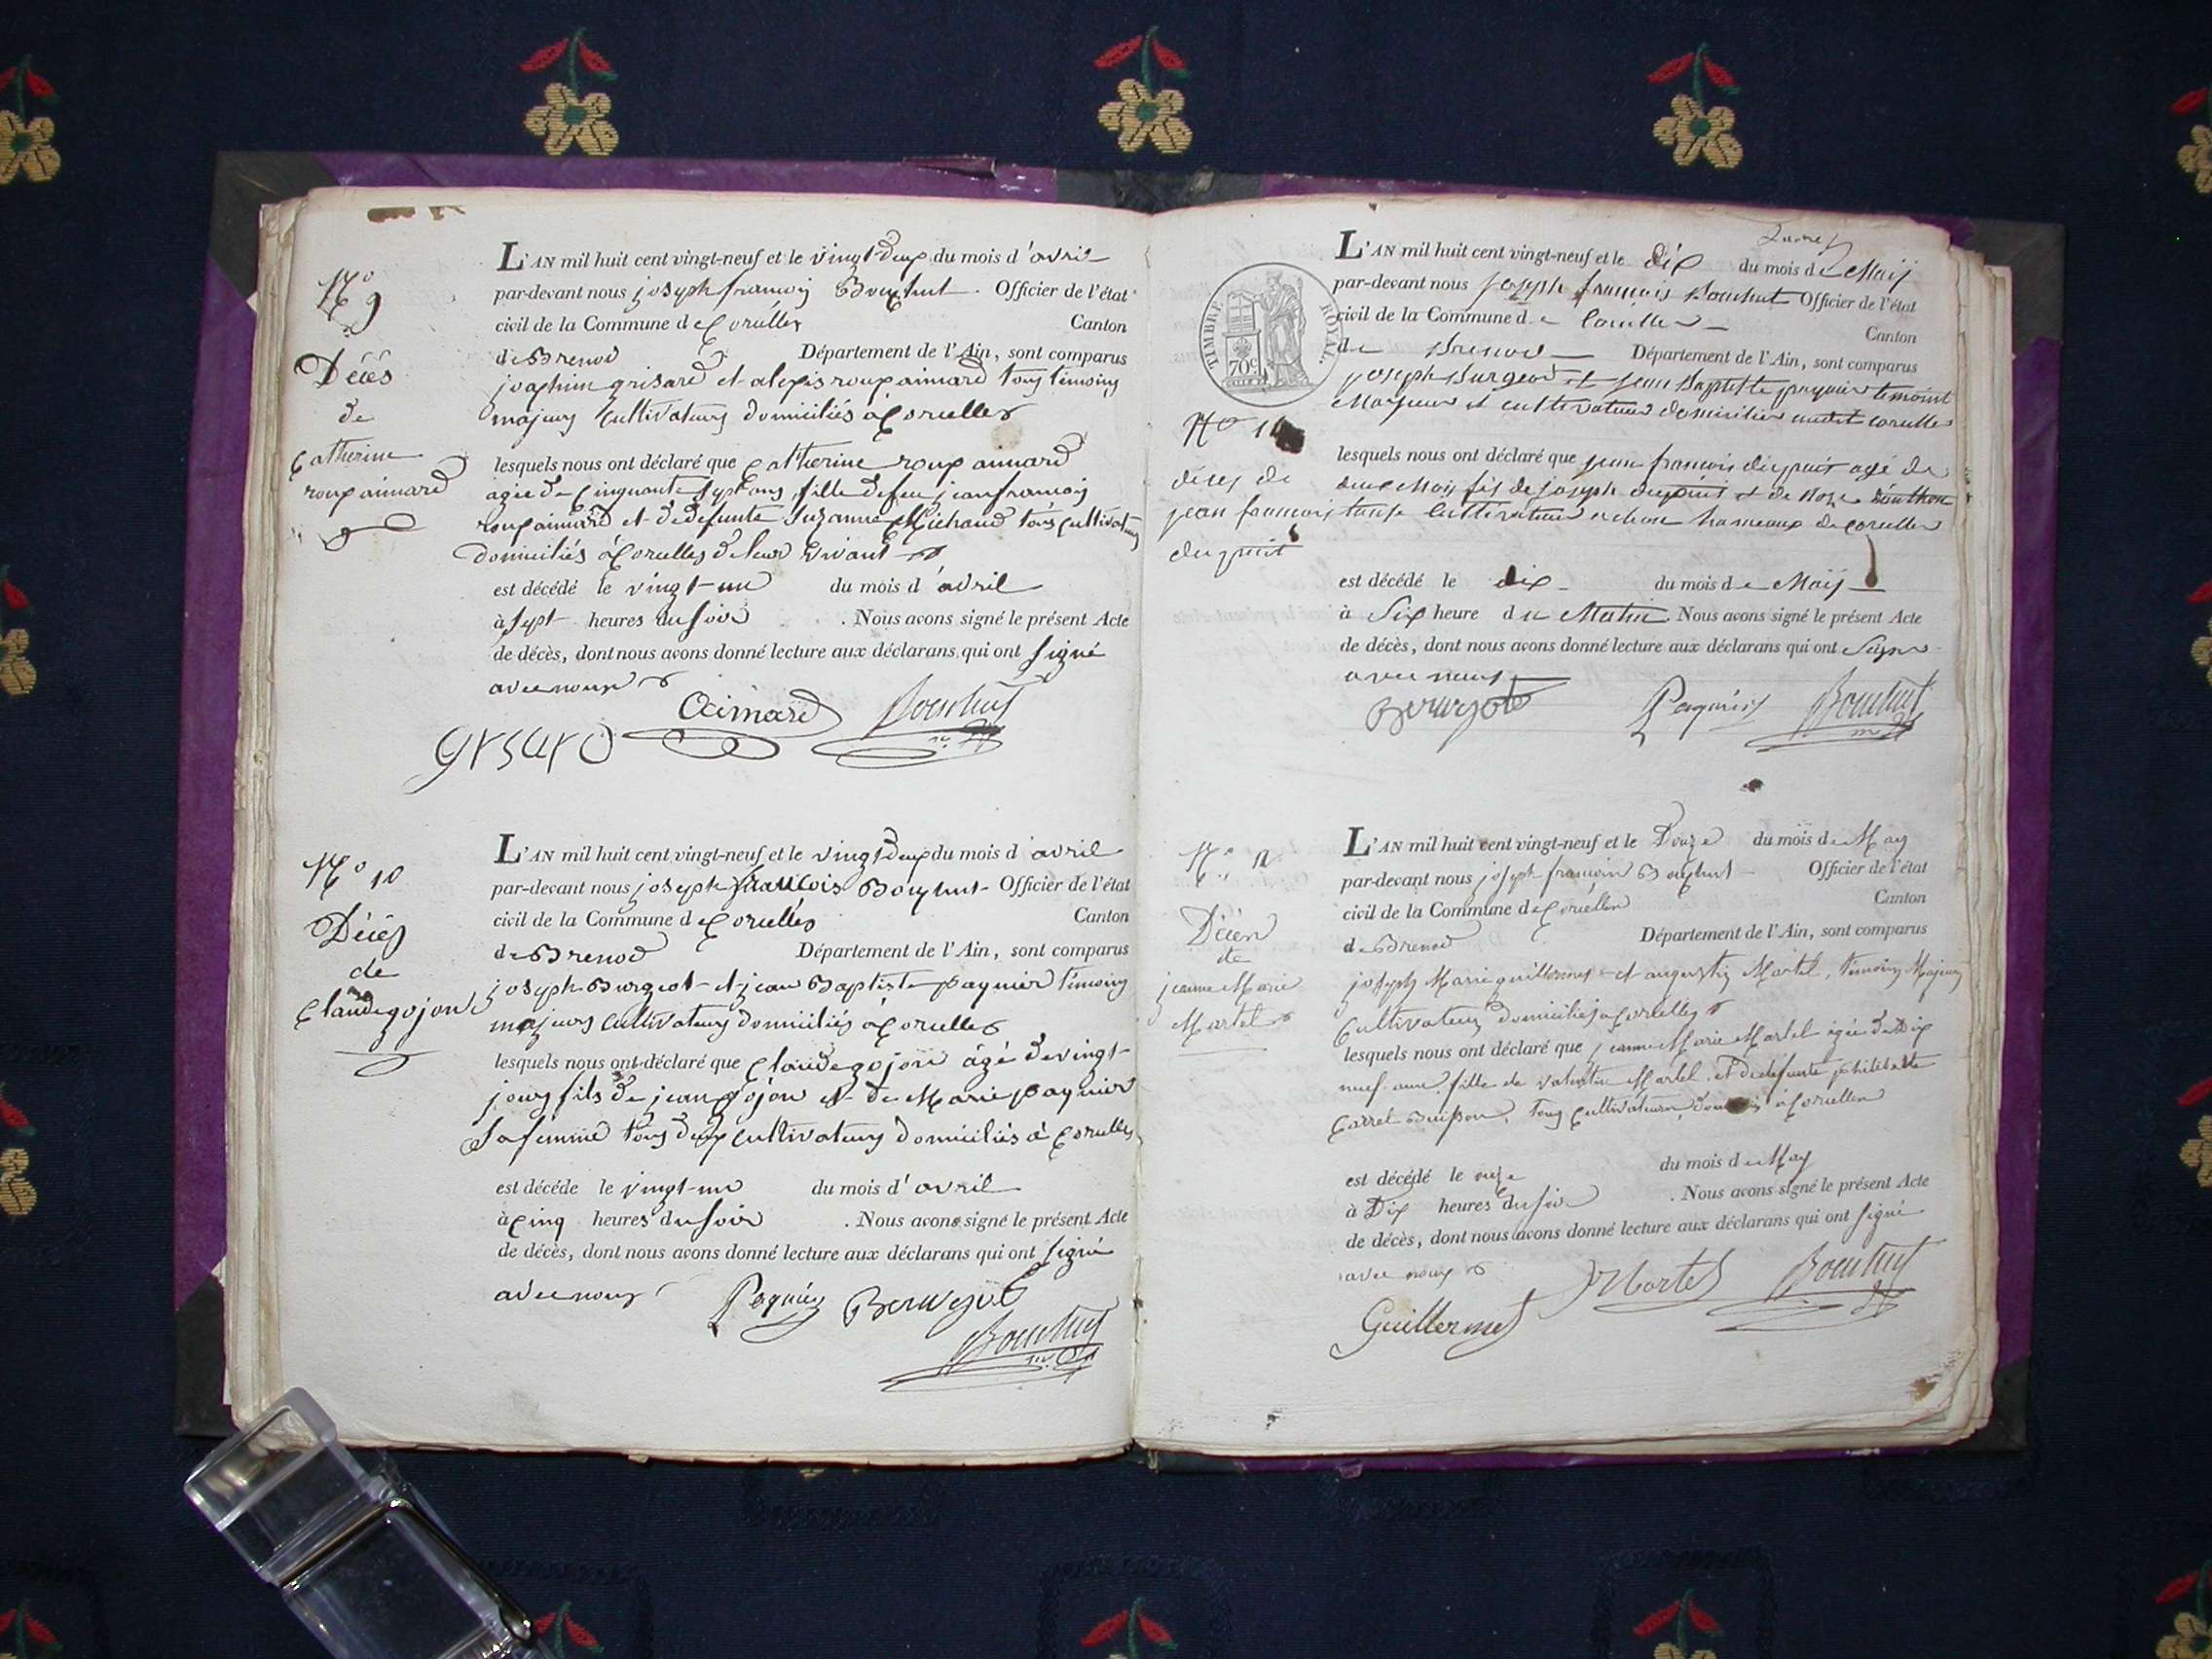 N° 9
Décés
de
Catherine
roup aimard
L'AN mil huit cent vingt-neuf et le vingt deux du mois d'avril
par-devant nous joseph françois Bouchut. Officier de l'état
civil de la Commune de Corcelles Canton
de Brenod Département de l'Ain, sont comparus
joaphim grisard et alexis roup aimard tous témoins
majeurs Cultivateurs domiciliés à Corcelles
lesquels nous ont déclaré que Catherine roup aimard
agée de Cinquante sept ans, fille de feu jean françois
roup aimard et de defunte Suzanne Michaud tous Cultivateurs
domiciliés à Corcelles de leur vivant
est décédé le vingt-un du mois d'avril
à sept heures du soir. Nous avons signé le présent Acte
de décès, dont nous avons donné lecture aux déclarans qui ont signé
avec nous
Aimard Bouchut
grsard
N° 10
Décés
de
Claude gojon
L'AN mil huit cent vingt-neuf et le vingt deux du mois d'avril
par-devant nous joseph françois Bouchut Officier de l'état
civil de la Commune de Corcelles Canton
de Brenod Département de l'Ain, sont comparus
joseph Burgeot et jean Baptiste paquier témoins
majeurs Cultivateurs domiciliés à Corcelles
lesquels nous ont déclaré que Claude gojon âgé de vingt
jours fils de jean gojon et de Marie paquier
Sa femme tous deux Cultivateurs domiciliés à Corcelles
est décéde le vingt-un du mois d'avril
à Cinq heures du soir. Nous avons signé le présent Acte
de décès, dont nous avons donné lecture aux déclarans qui ont signé
avec nous
Paquier
Bouchut
TIMBRE ROYAL
70c
N° 11
déces de
jean francois
dupuit
L'AN mil huit cent vingt-neuf et le dix du mois de Maij
par-devant nous joseph françois Bouchut Officier de l'état
civil de la Commune de Corcelles Canton
de Brenod Département de l'Ain, sont comparus
joseph Burgeod et jean Baptiste paquier temoint
Majeur et cultivateur domicilier audit corcelles
lesquels nous ont déclaré que jean francois dupuit agé de
deux Mois fis de joseph dupuit et de Roze
Cultivateur hameaux de corcelles
est décédé le dix du mois de Maij
à Six heure du Matin. Nous avons signé le présent Acte
de décès, dont nous avons donné lecture aux déclarans qui ont Signe
avec nous
Paquier Bouchut
N° 12
Décès
de
jeanne Marie
Martel
L'AN mil huit cent vingt-neuf et le Douze du mois de May
par-devant nous joseph françois Bouchut Officier de l'état
civil de la Commune de Corcelles Canton
de Brenod Département de l'Ain, sont comparus
joseph Marie guillermet et augustin Martel, témoins Majeurs
Cultivateurs domiciliés à Corcelles
lesquels nous ont déclaré que jeanne Marie Martel agée de Dix
neuf ans fille de valentin Martel et de defunte philiberte
Carrel Buisson, tous Cultivateurs à Corcelles
est décédé le onze du mois de May
à Dix heures du soir. Nous avons signé le présent Acte
de décès, dont nous avons donné lecture aux déclarans qui ont signé
avec nous
Martel Bouchut
Guillermet